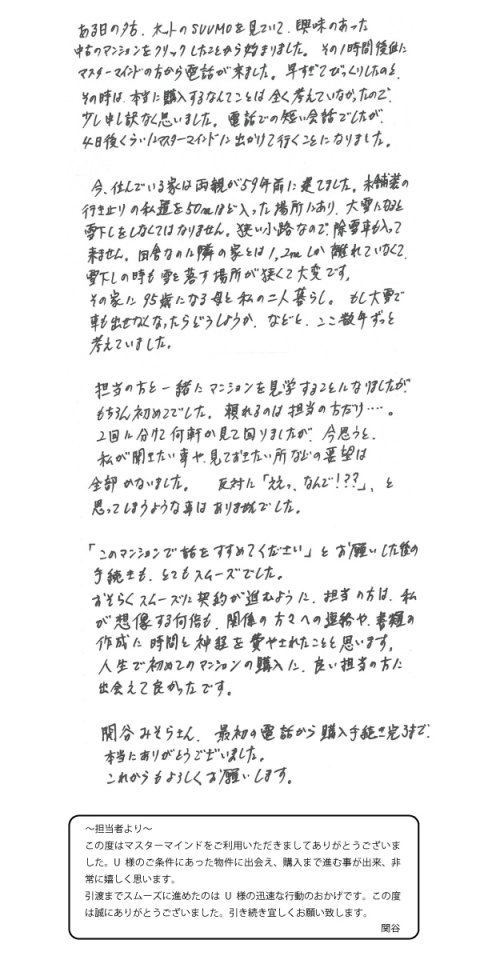 ある日の夕方、ネットのSUUMOを見ていて、興味のあった
中古のマンションをクリックしたことから始まりました。その1時間後位に
マスターマインドの方から電話が来ました。早すぎてびっくりしたのと、
その時は、本当に購入するなんてことは全く考えていなかったので、
少し申し訳なく思いました。電話での短い会話でしたが、
4日後くらいにマスターマインドに出かけて行くことになりました。
今、住んでいる家は両親が59年前に建てました。未舗装の
行き止りの私道を50mほど入った場所にあり、大雪になると
雪下しをしなくてはなりません。狭い小路なので、除雪車も入って
来ません。田舎なのに隣の家とは1,2mしか離れていなくて、
雪下しの時も雪を落す場所が狭くて大変です。
その家に95歳になる母と私の二人暮らし。もし大雪で
車も出せなくなったらどうしようか、などと、ここ数年ずっと
考えていました。
担当の方と一緒にマンションを見学することになりましたが、
もちろん初めてでした。頼れるのは担当の方だけ‥‥。
2回に分けて何軒か見て回りましたが、今思うと、
私が聞きたい事や、見ておきたい所などの要望は
全部かないました。 反対に「ええっ、なんで!??」、と
思ってしまうような事はありませんでした。
「このマンションで話をすすめてください」とお願いした後の
手続きも、とてもスムーズでした。
おそらくスムーズに契約が進むように、担当の方は、私
が想像する何倍も、関係の方々への連絡や、書類の
作成に時間と神経を費やされたことと思います。
人生で初めてのマンションの購入に、良い担当の方に
出会えて良かったです。
関谷みそらさん、最初の電話から購入手続き完了まで、
本当にありがとうございました。
これからもよろしくお願いします。
〜担当者より〜
この度はマスターマインドをご利用いただきましてありがとうございま
した。U 様のご条件にあった物件に出会え、購入まで進む事が出来、非
常に嬉しく思います。
引渡までスムーズに進めたのは U 様の迅速な行動のおかげです。この度
は誠にありがとうございました。引き続き宜しくお願い致します。
関谷